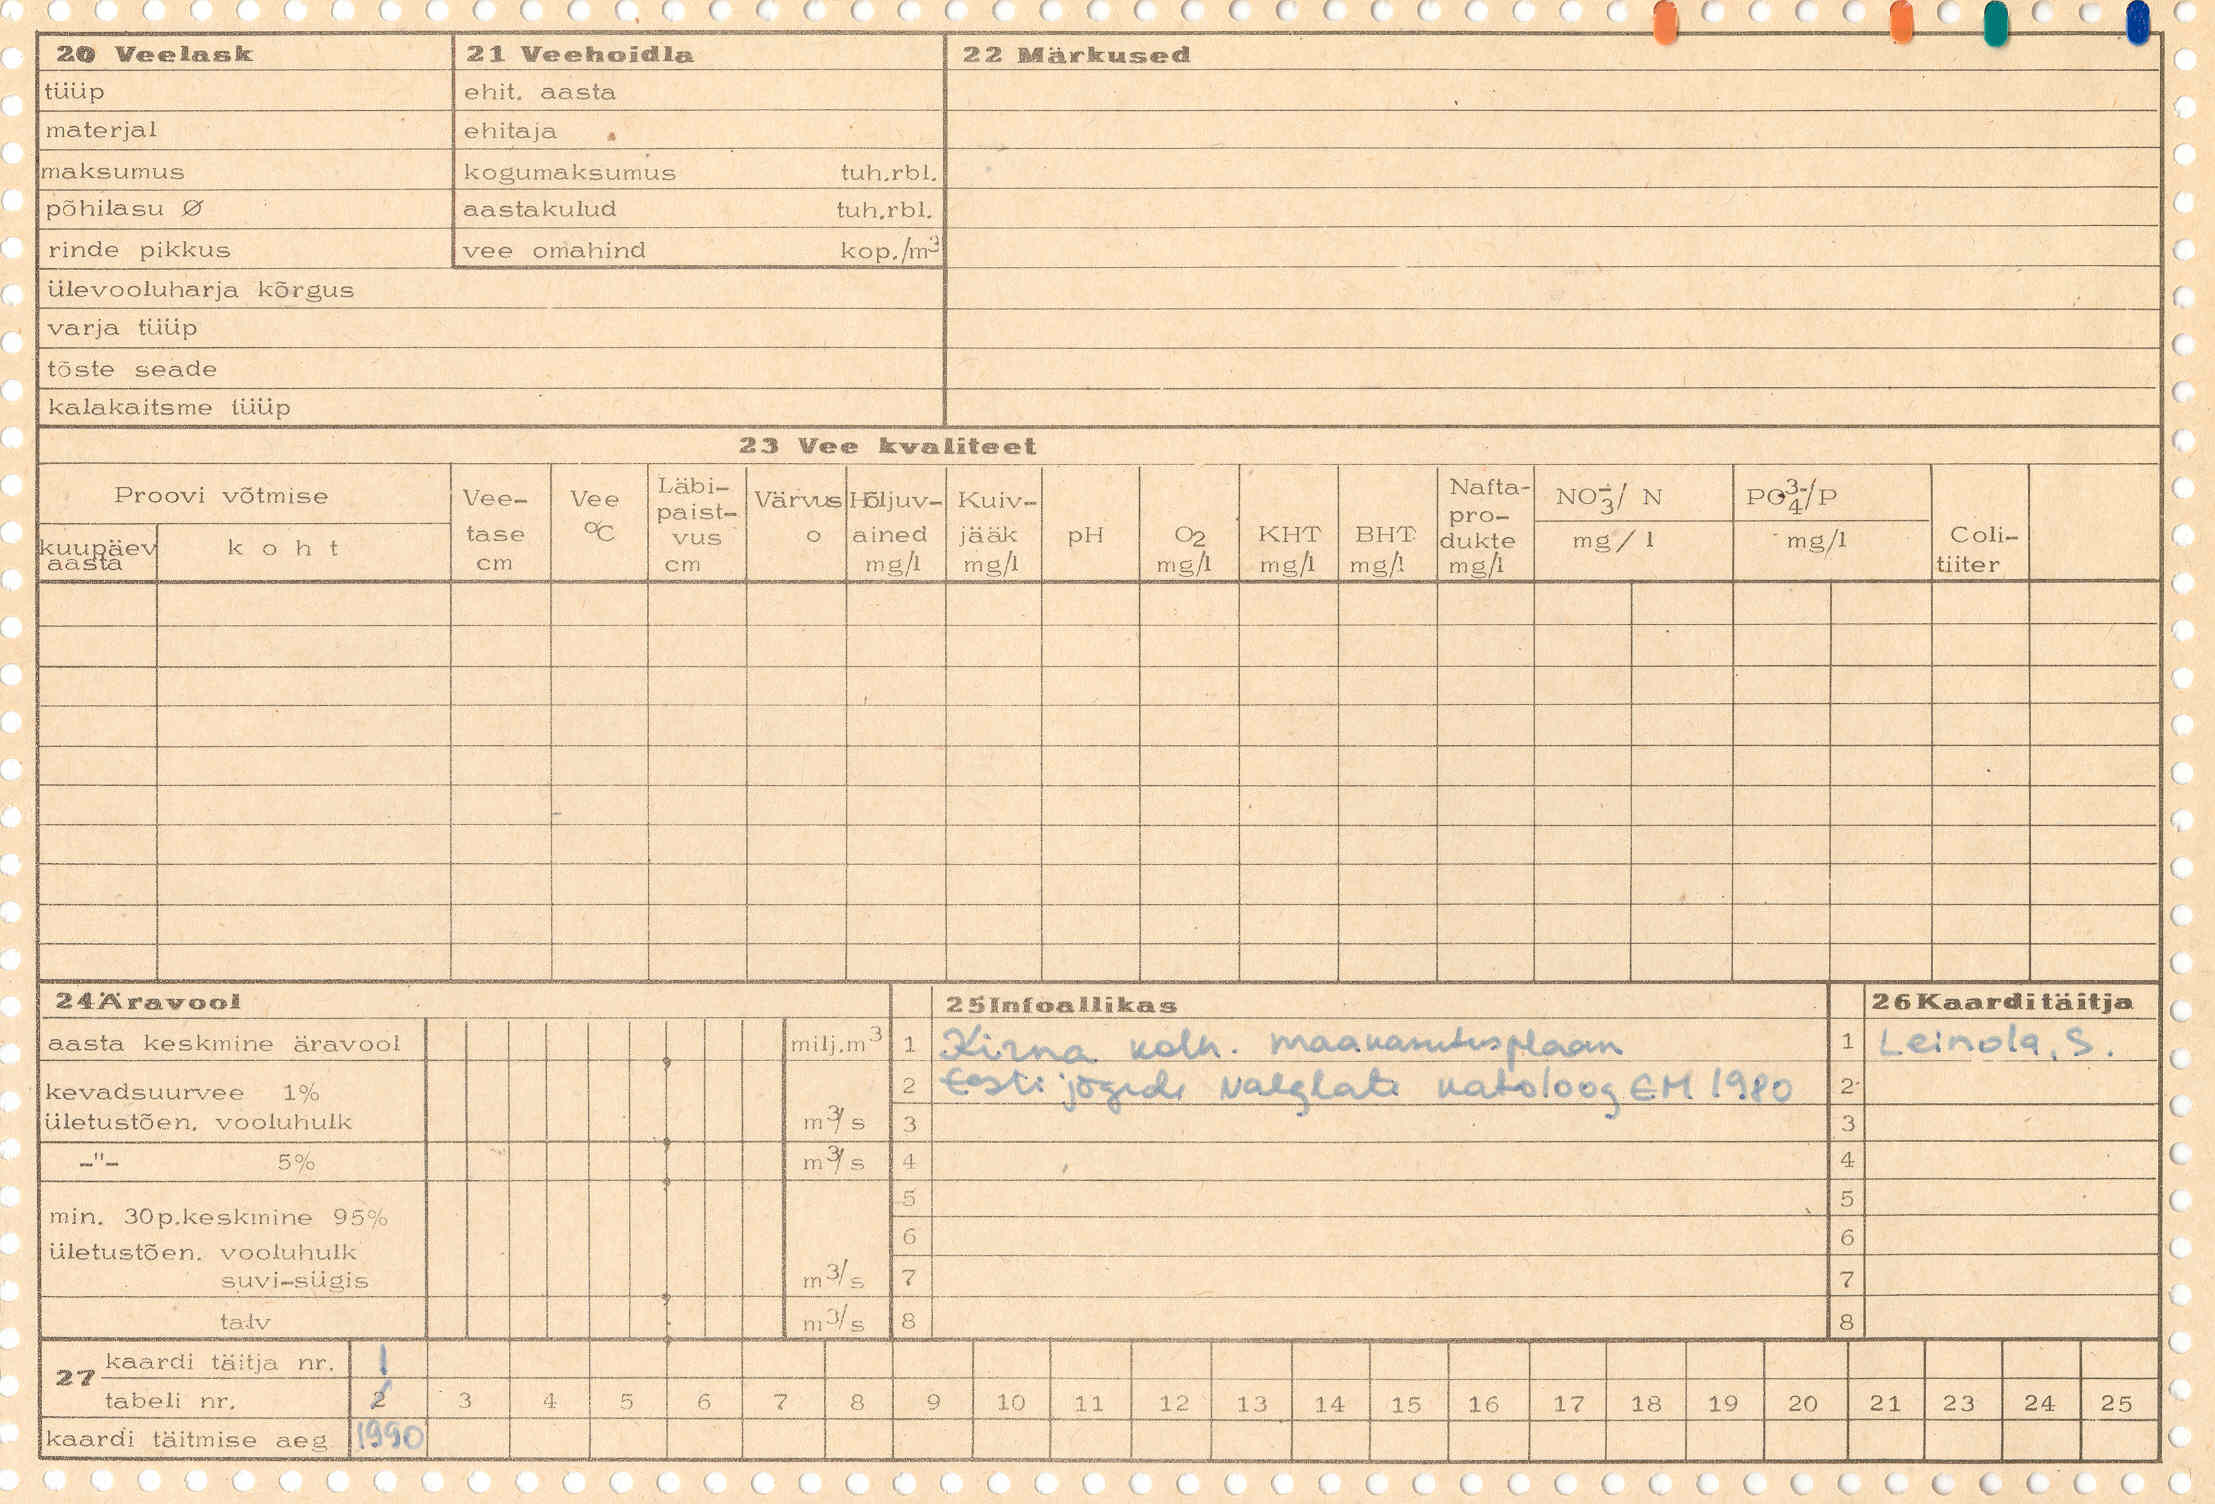 20 Veelask
tüüp
materjal
maksumus
põhilasu Ø
rinde pikkus
ülevooluharja kõrgus
varja tüüp
tõste seade
kalakaitsme tüüp
21 Veehoidla
ehit. aasta
ehitaja
kogumaksumus tuh.rbl.
aastakulud tuh.rbl.
vee omahind kop./m³
22 Märkused
23 Vee kvaliteet
Proovi võtmise
kuupäev aasta
koht
Vee-tase cm
Vee °C
Läbi-paist-vus cm
Värvus o
Hõljuv-ained mg/l
Kuiv-jääk mg/l
pH
O2 mg/l
KHT mg/l
BHT mg/l
Nafta-pro-dukte mg/l
NO3-/ N mg/l
PO4 3-/P mg/l
Coli-tiiter
24 Äravool
aasta keskmine äravool milj.m³
kevadsuurvee 1%
ületustõen. vooluhulk m³/s
-"- 5% m³/s
min. 30p.keskmine 95%
ületustõen. vooluhulk
suvi-sügis m³/s
talv m³/s
25 Infoallikas
1 Kirna kolh. maakasutusplaan
2 Eesti jõgede valglate kataloog EM 1980
3
4
5
6
7
8
26 Kaarditäitja
1 Leinola, S.
2
3
4
5
6
7
8
27 kaardi täitja nr. 1
tabeli nr. 2 3 4 5 6 7 8 9 10 11 12 13 14 15 16 17 18 19 20 21 23 24 25
kaardi täitmise aeg 1990